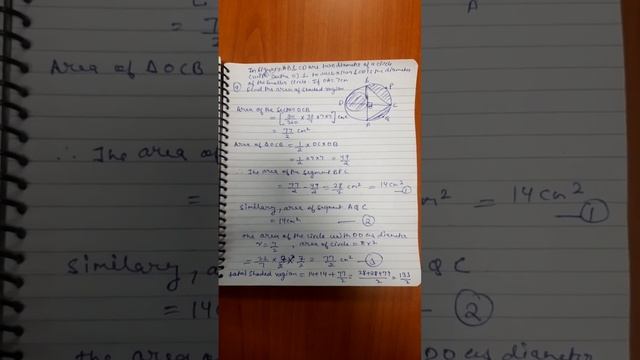 In figure AB & CD are two diameter of a circle
(with centre O) ⊥ to each other & OD is the diameter
of the smaller circle. If OA = 7cm
find the area of shaded region
Area of the sector OCB
= [90/360 × 22/7 × 7×7] cm²
= 77/2 cm²
Area of △OCB = 1/2 × OC × OB
= 1/2 × 7×7 = 49/2
∴ The area of the segment BPC
= 77/2 - 49/2 = 28/2 cm² = 14 cm² — ①
similary, area of segment AQC
= 14cm² — ②
the area of the circle with OD as diameter
r = 7/2, area of circle = πr²
= 22/7 × 7/2 × 7/2 = 77/2 cm² — ③
total shaded region = 14+14+77/2 = 28+28+77/2 = 133/2
D
P
C
Q
A
Area of △OCB
∴ The area of
similary, a
= 14c
the area of
14cm²
①
QC
②
OD as diamete